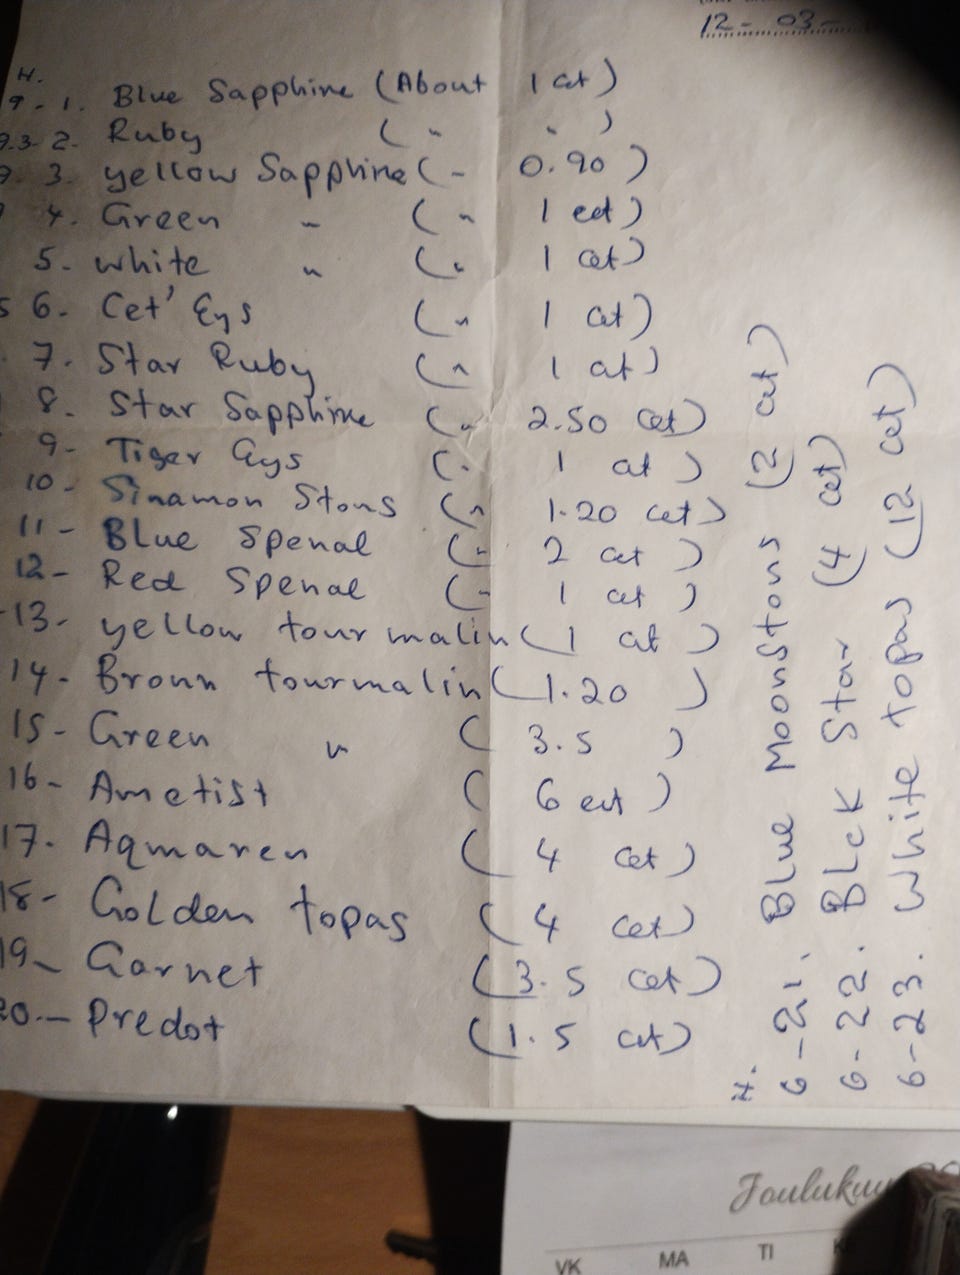 12-03-
H.
9-1. Blue Sapphire (About 1 cet)
9.3-2. Ruby ( " " )
9. 3. yellow Sapphire ( " 0.90 )
4. Green " ( " 1 cet)
5. White " ( " 1 cet)
5 6. Cet' Eys ( " 1 cet)
7. Star Ruby ( " 1 cet)
8. Star Sapphire ( " 2.50 cet)
9- Tiger Eys ( " 1 cet )
10- Sinamon Stons ( " 1.20 cet)
11- Blue Spenal ( " 2 cet )
12- Red Spenal ( " 1 cet )
-13- yellow tourmalin ( 1 cet )
14- Bronn tourmalin (1.20 )
15- Green " ( 3.5 )
16- Ametist ( 6 cet )
17- Aqmaren ( 4 cet)
18- Golden topas ( 4 cet)
19- Garnet (3.5 cet)
20.- Predot (1.5 cet)
H.
6-21. Blue Moonstons (2 cet)
6-22. Blck Star (4 cet)
6-23. White topas (12 cet)
VK MA TI